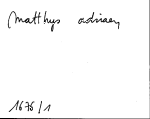 Matthys adriaen
1676/1